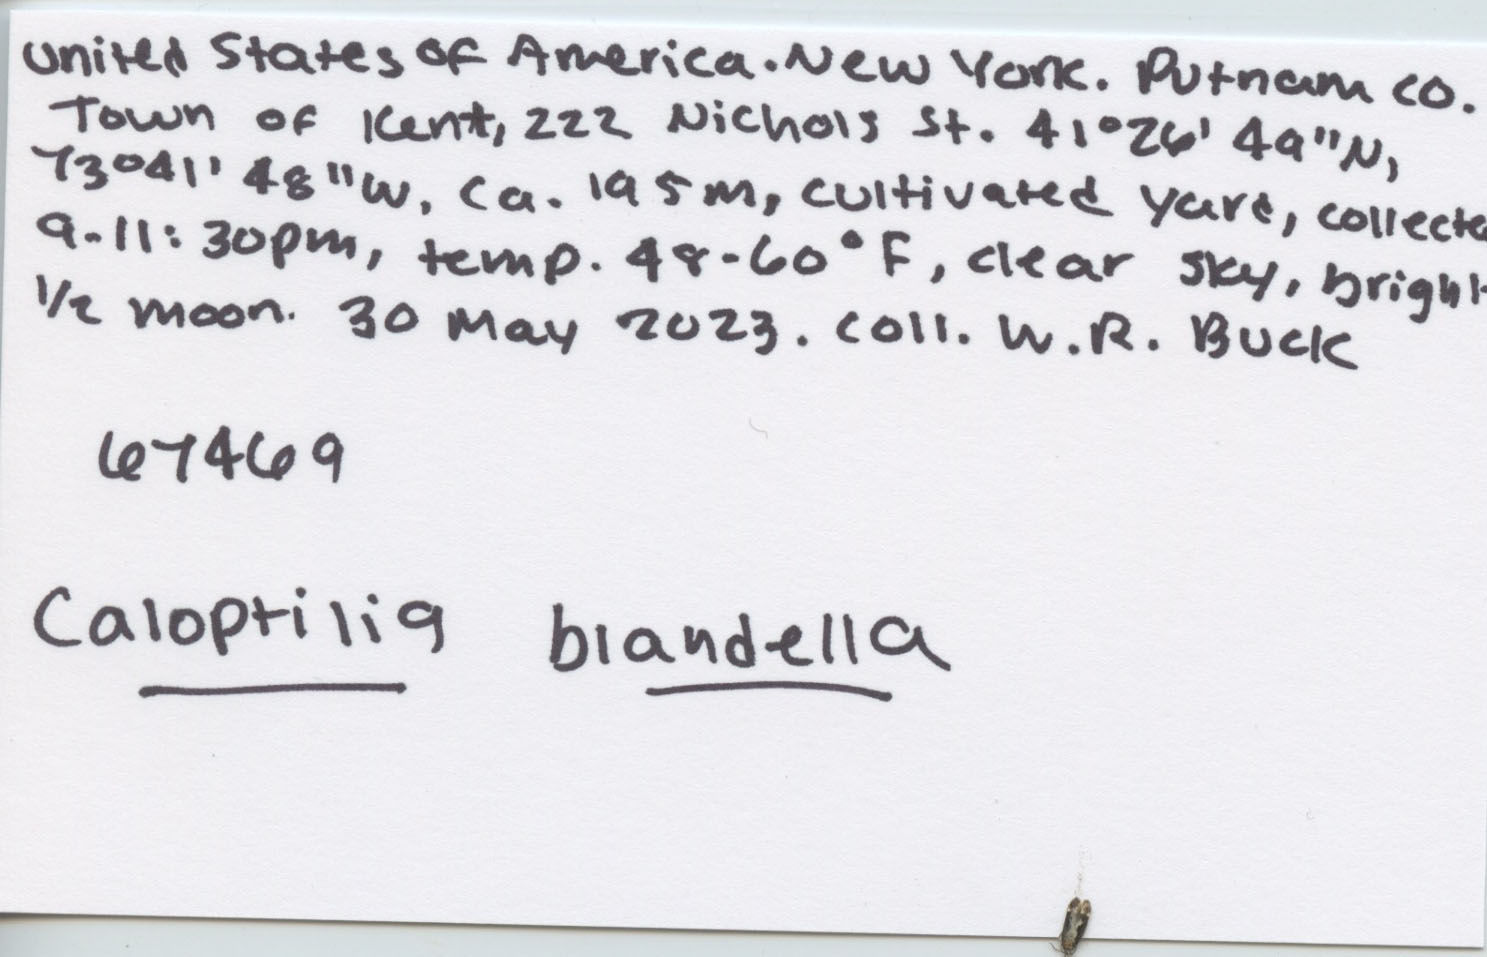 United States of America. New York. Putnam co.
Town of Kent, 222 Nichols St. 41°26' 49"N,
73°41' 48"W, ca. 195m, cultivated yard, collecte
9-11:30pm, temp. 48-60°F, clear sky, bright
1/2 moon. 30 May 2023. coll. W.R. Buck
67469
Caloptilia blandella